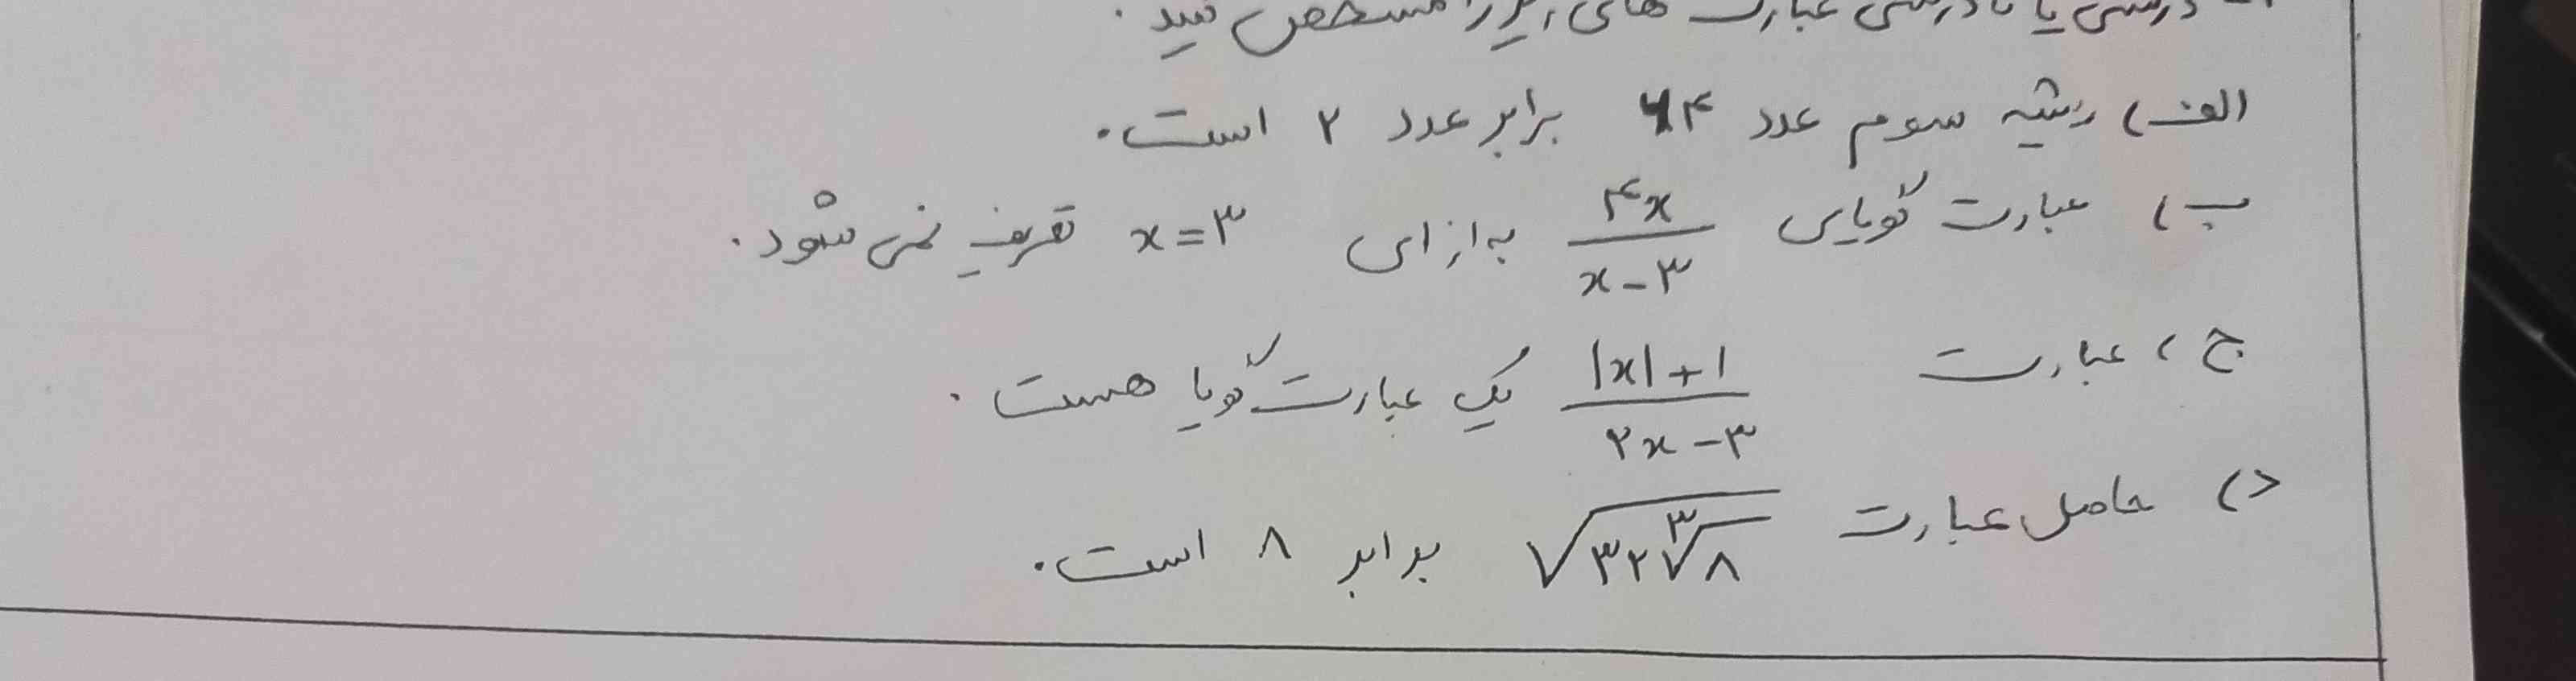 درستی یا نادرستی عبارت های زیر را مشخص کنید.
الف) ریشه سوم عدد ۶۴ برابر عدد ۲ است.
ب) عبارت گویای ۴x/(x-۳) به ازای x=۳ تعریف نمی شود.
ج) عبارت (|x|+۱)/(۲x-۳) یک عبارت گویا هست.
د) حاصل عبارت √(۳۲∛۸) برابر ۸ است.